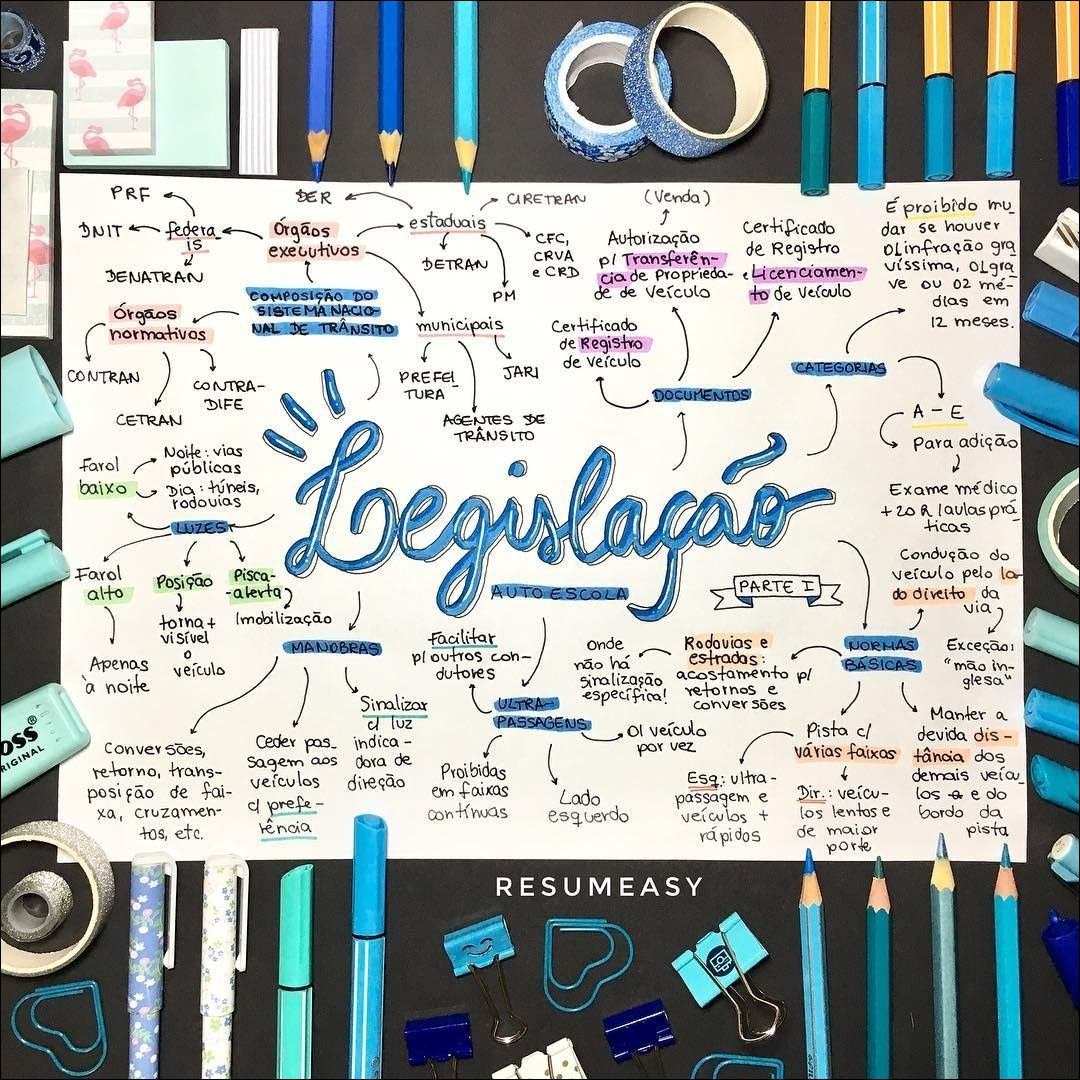 PRF
DNIT
federa_
is
DENATRAN
Órgãos
executivos
DER
estaduais
CIRETRAN
DETRAN
CFC,
CRVA
e CRD
PM
municipais
PREFEI_
TURA
AGENTES DE
TRÂNSITO
JARI
COMPOSIÇÃO DO
SISTEMA NACIO-
NAL DE TRÂNSITO
Órgãos
normativos
CONTRAN
CETRAN
CONTRA-
DIFE
(Venda)
Autorização
p/ Transferên-
cia de Proprieda-
de de Veículo
Certificado
de Registro
e Licenciamen-
to de Veículo
Certificado
de Registro
de Veículo
DOCUMENTOS
É proibido mu_
dar se houver
01 infração gra_
víssima, 01 gra_
ve ou 02 mé-
dias em
12 meses.
CATEGORIAS
A - E
Para adição
Exame médico
+ 20 h/aulas prá-
ticas
Farol
baixo
Noite: vias
públicas
Dia: túneis,
rodovias
LUZES
Farol
alto
Apenas
à noite
Posição
torna +
visível
o
veículo
Pisca-
-alerta
Imobilização
Legislação
AUTO ESCOLA
PARTE I
MANOBRAS
Conversões,
retorno, trans-
posição de fai-
xa, cruzamen-
tos, etc.
Ceder pas_
sagem aos
veículos
c/ prefe-
rência
Sinalizar
c/ luz
indica-
dora de
direção
Facilitar
p/ outros con-
dutores
ULTRA-
PASSAGENS
Proibidas
em faixas
contínuas
Lado
esquerdo
01 veículo
por vez
Onde
não há
sinalização
específica!
Rodovias e
estradas:
acostamento p/
retornos e
conversões
NORMAS
BÁSICAS
Condução do
veículo pelo la-
do direito da
via
Exceção:
"mão in-
glesa"
Pista c/
várias faixas
Esq: ultra-
passagem e
veículos +
rápidos
Dir.: veícu-
los lentos e
de maior
porte
Manter a
devida dis-
tância dos
demais veícu_
los e do
bordo da
pista
OSS®
ORIGINAL
RESUMEASY